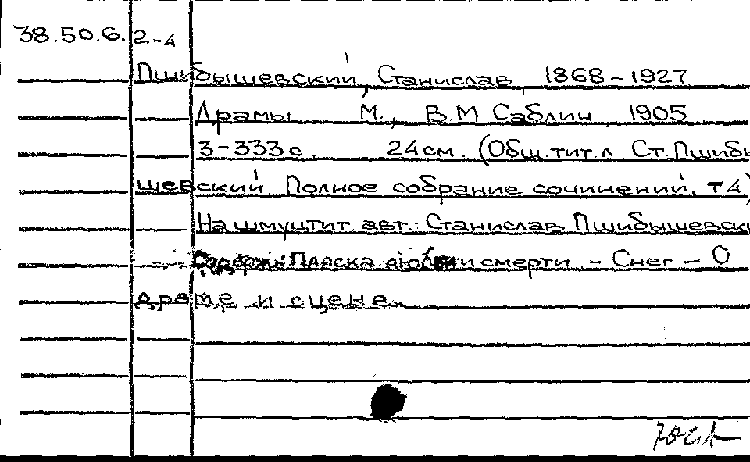 38.50.6.2-4
Пшибышевский, Станислав 1868-1927
Драмы М., В.М Саблин 1905
3-333 с. 24 см. (Общ.тит.л Ст.Пшибы
шевский Полное собрание сочинений, т 4)
На шмуцтит авт: Станислав Пшибышевски
Содерж: Пляска любви и смерти - Снег - О
драме и сцене.